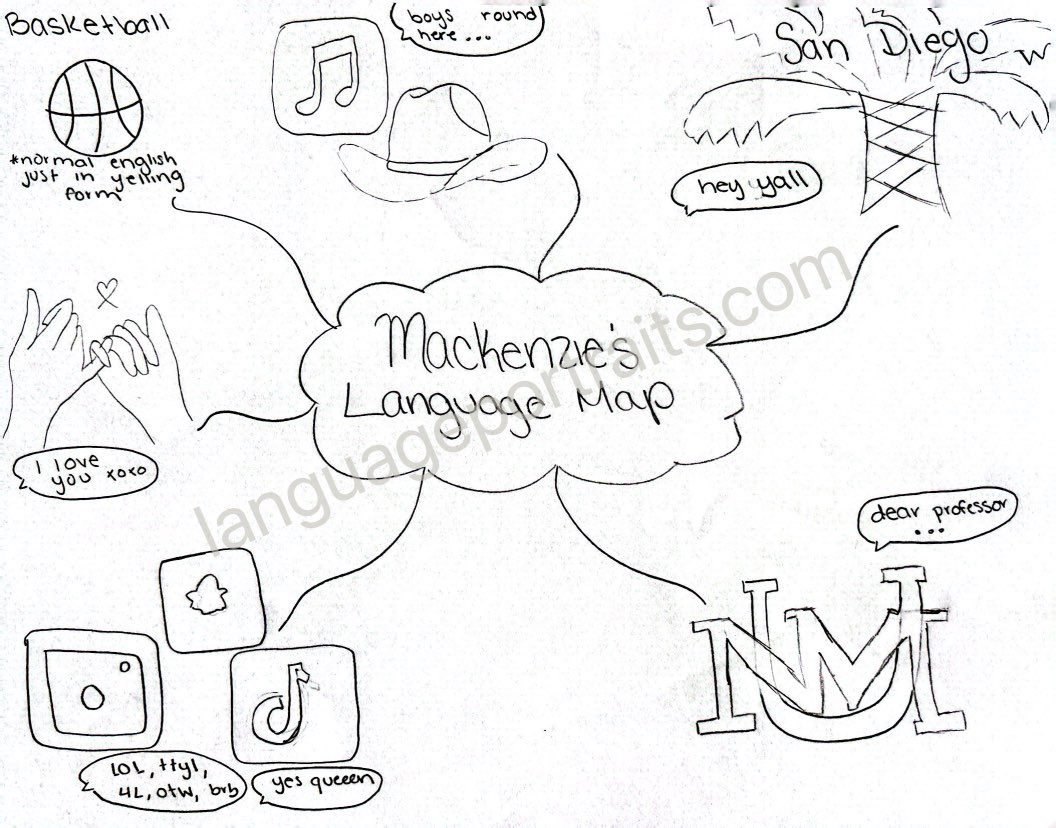 Basketball
*normal english
just in yelling
form
boys round
here...
San Diego
hey yall
I love
you xoxo
Mackenzie's
Language Map
languageportraits.com
dear professor
...
LOL, ttyl,
4L, otw, brb
yes queeen
UNM